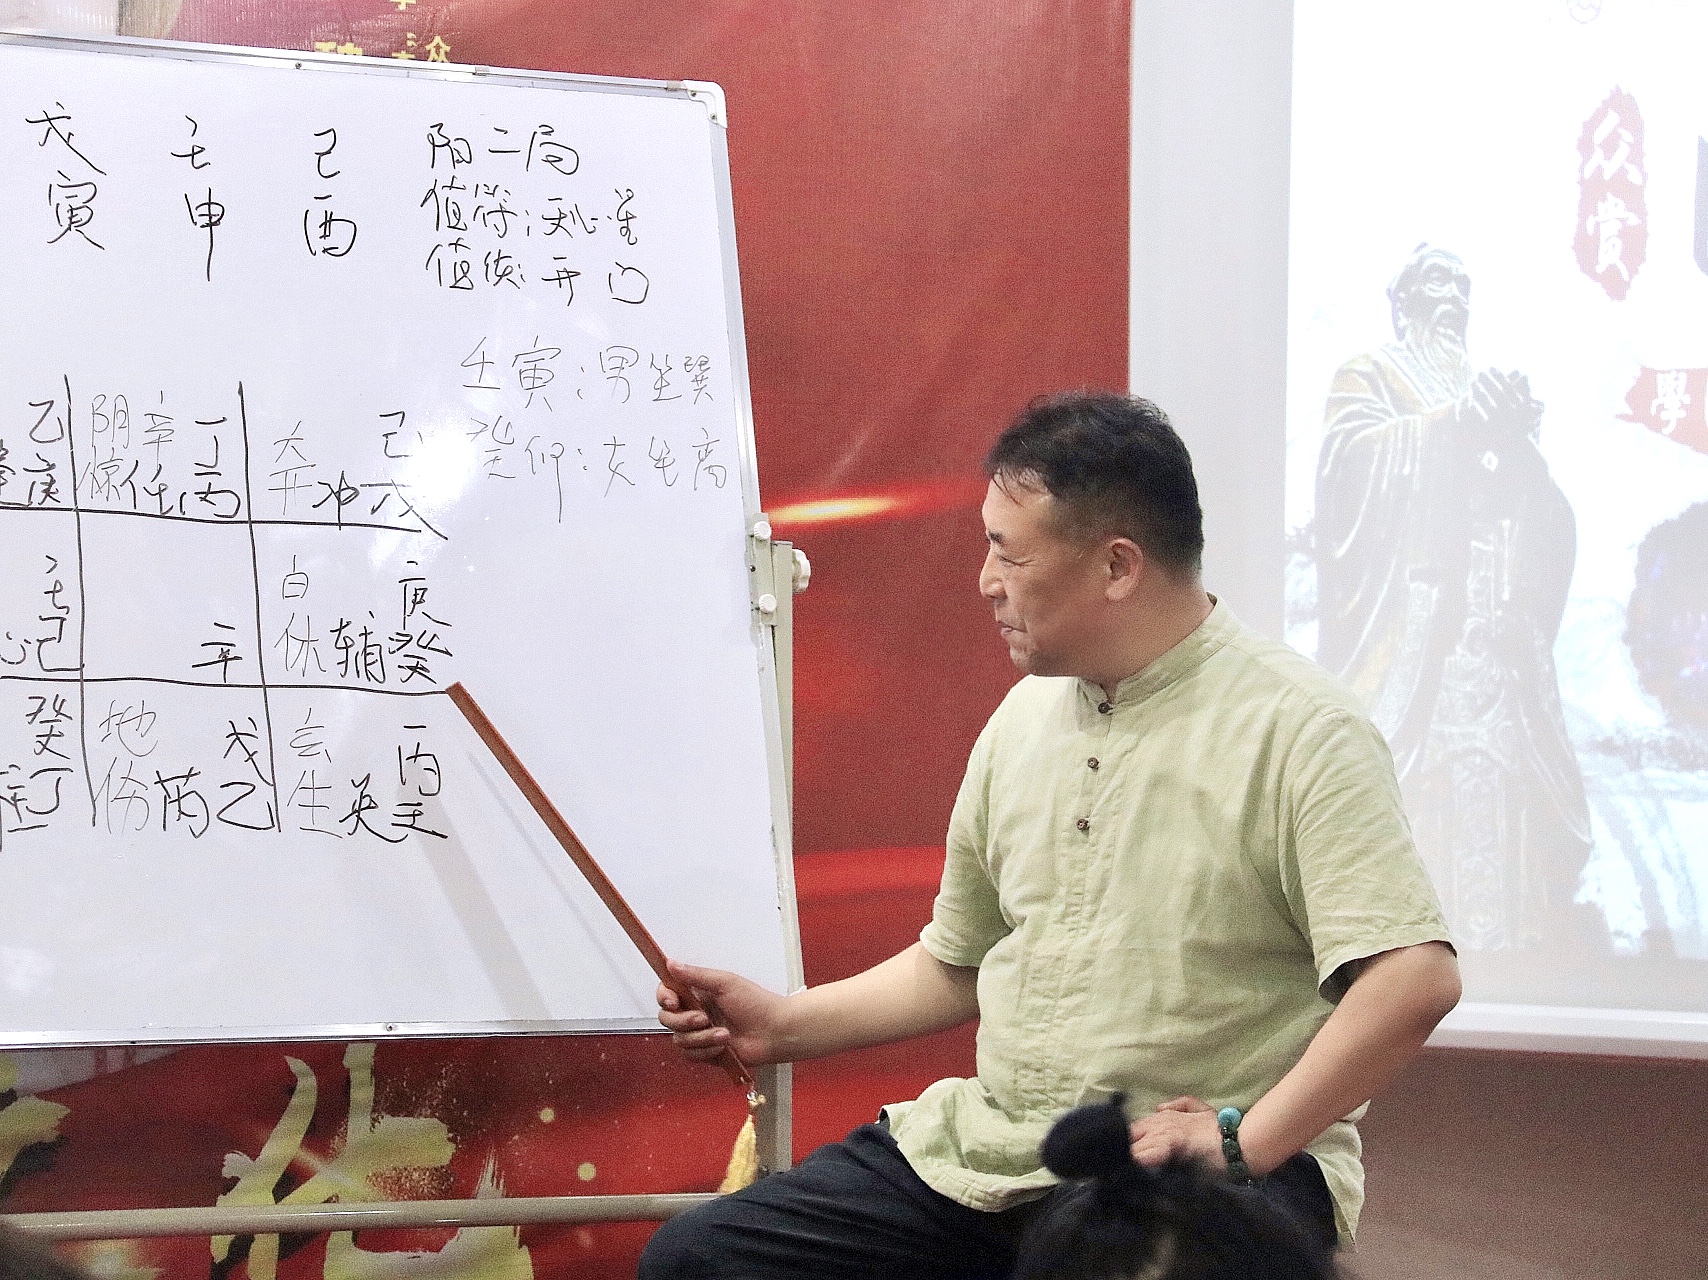 众
戊 壬 己 阳二局
寅 申 酉 值符:天心星
值使:开门
壬寅:男 坐巽
癸卯:女 坐离
乙 阴 辛 丁 己
庚 惊 任 丙 开 冲 戊
壬 白 庚
心 己 辛 休 辅 癸
癸 地 戊 玄 丙
丁 伤 芮 乙 生 英 壬
众
赏
學